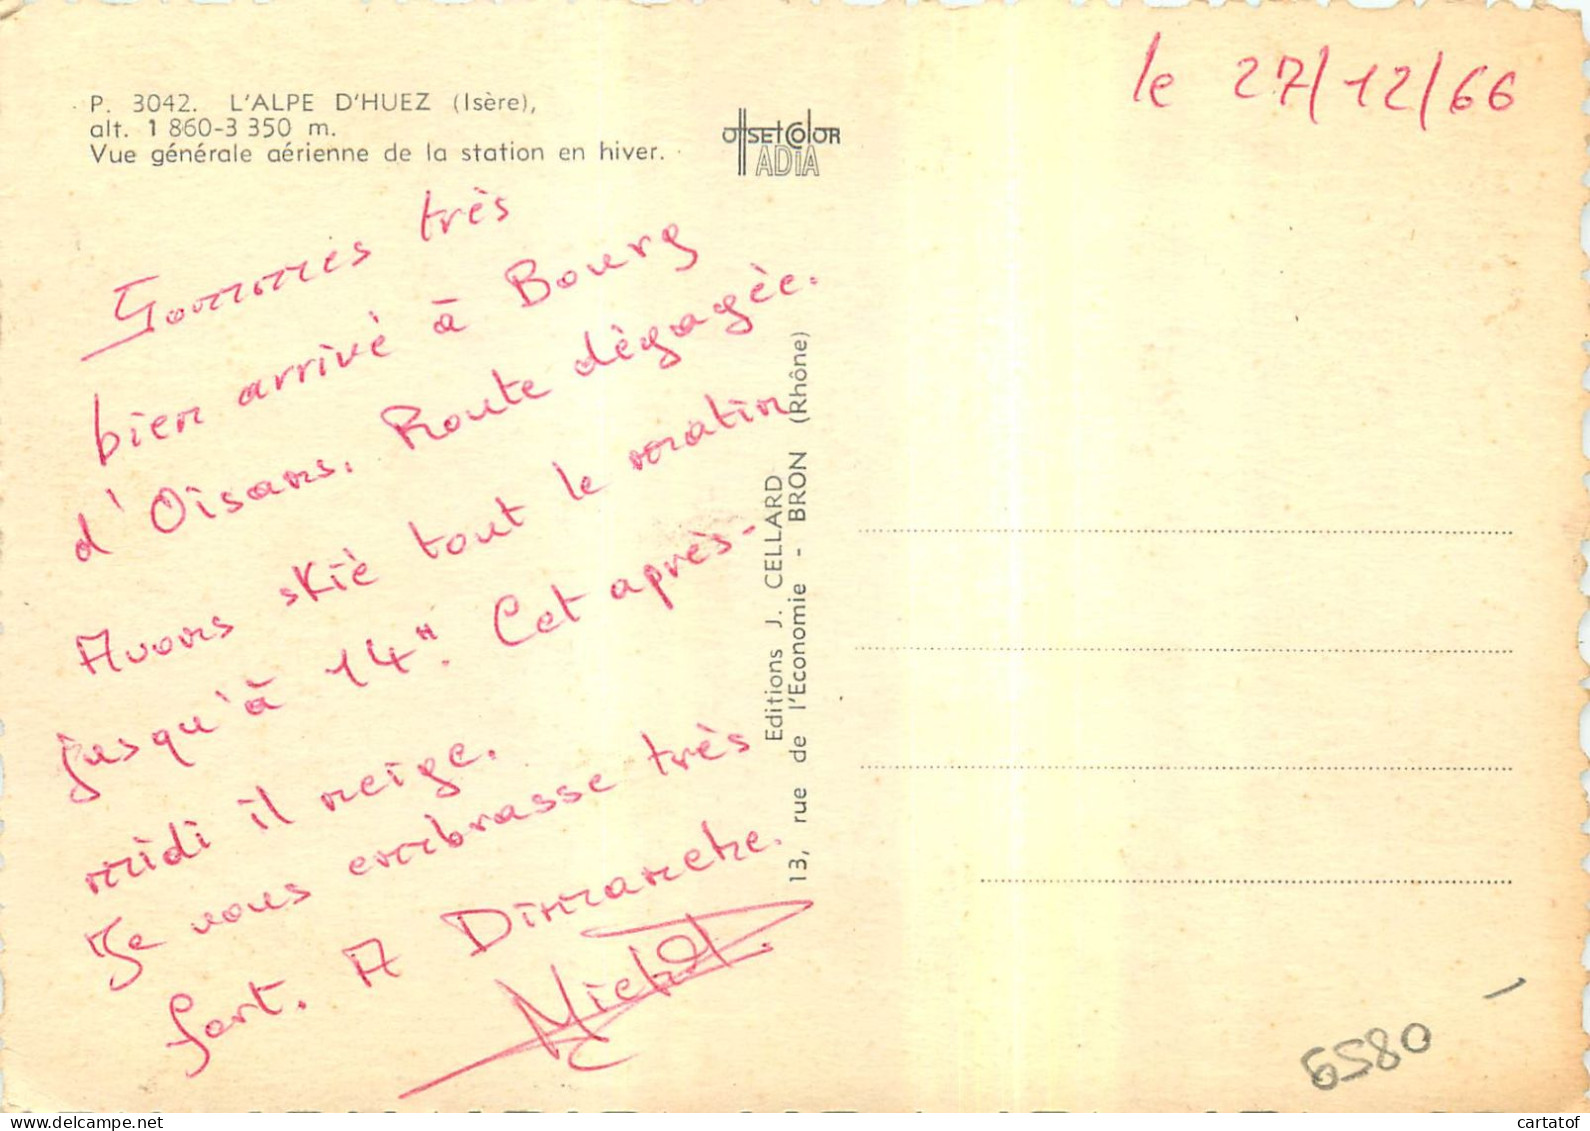 P. 3042. L'ALPE D'HUEZ (Isère),
alt. 1 860-3 350 m.
Vue générale aérienne de la station en hiver.
OffSETCOlOR
ADIA
le 27/12/66
Sommes très
bien arrivé à Bourg
d'Oisans. Route dégagée.
Avons skié tout le matin
jusqu'à 14H. Cet après-
midi il neige.
Je vous embrasse très
fort. A Dimanche.
Editions J. CELLARD
13, rue de l'Economie - BRON (Rhône)
6580
cartatof